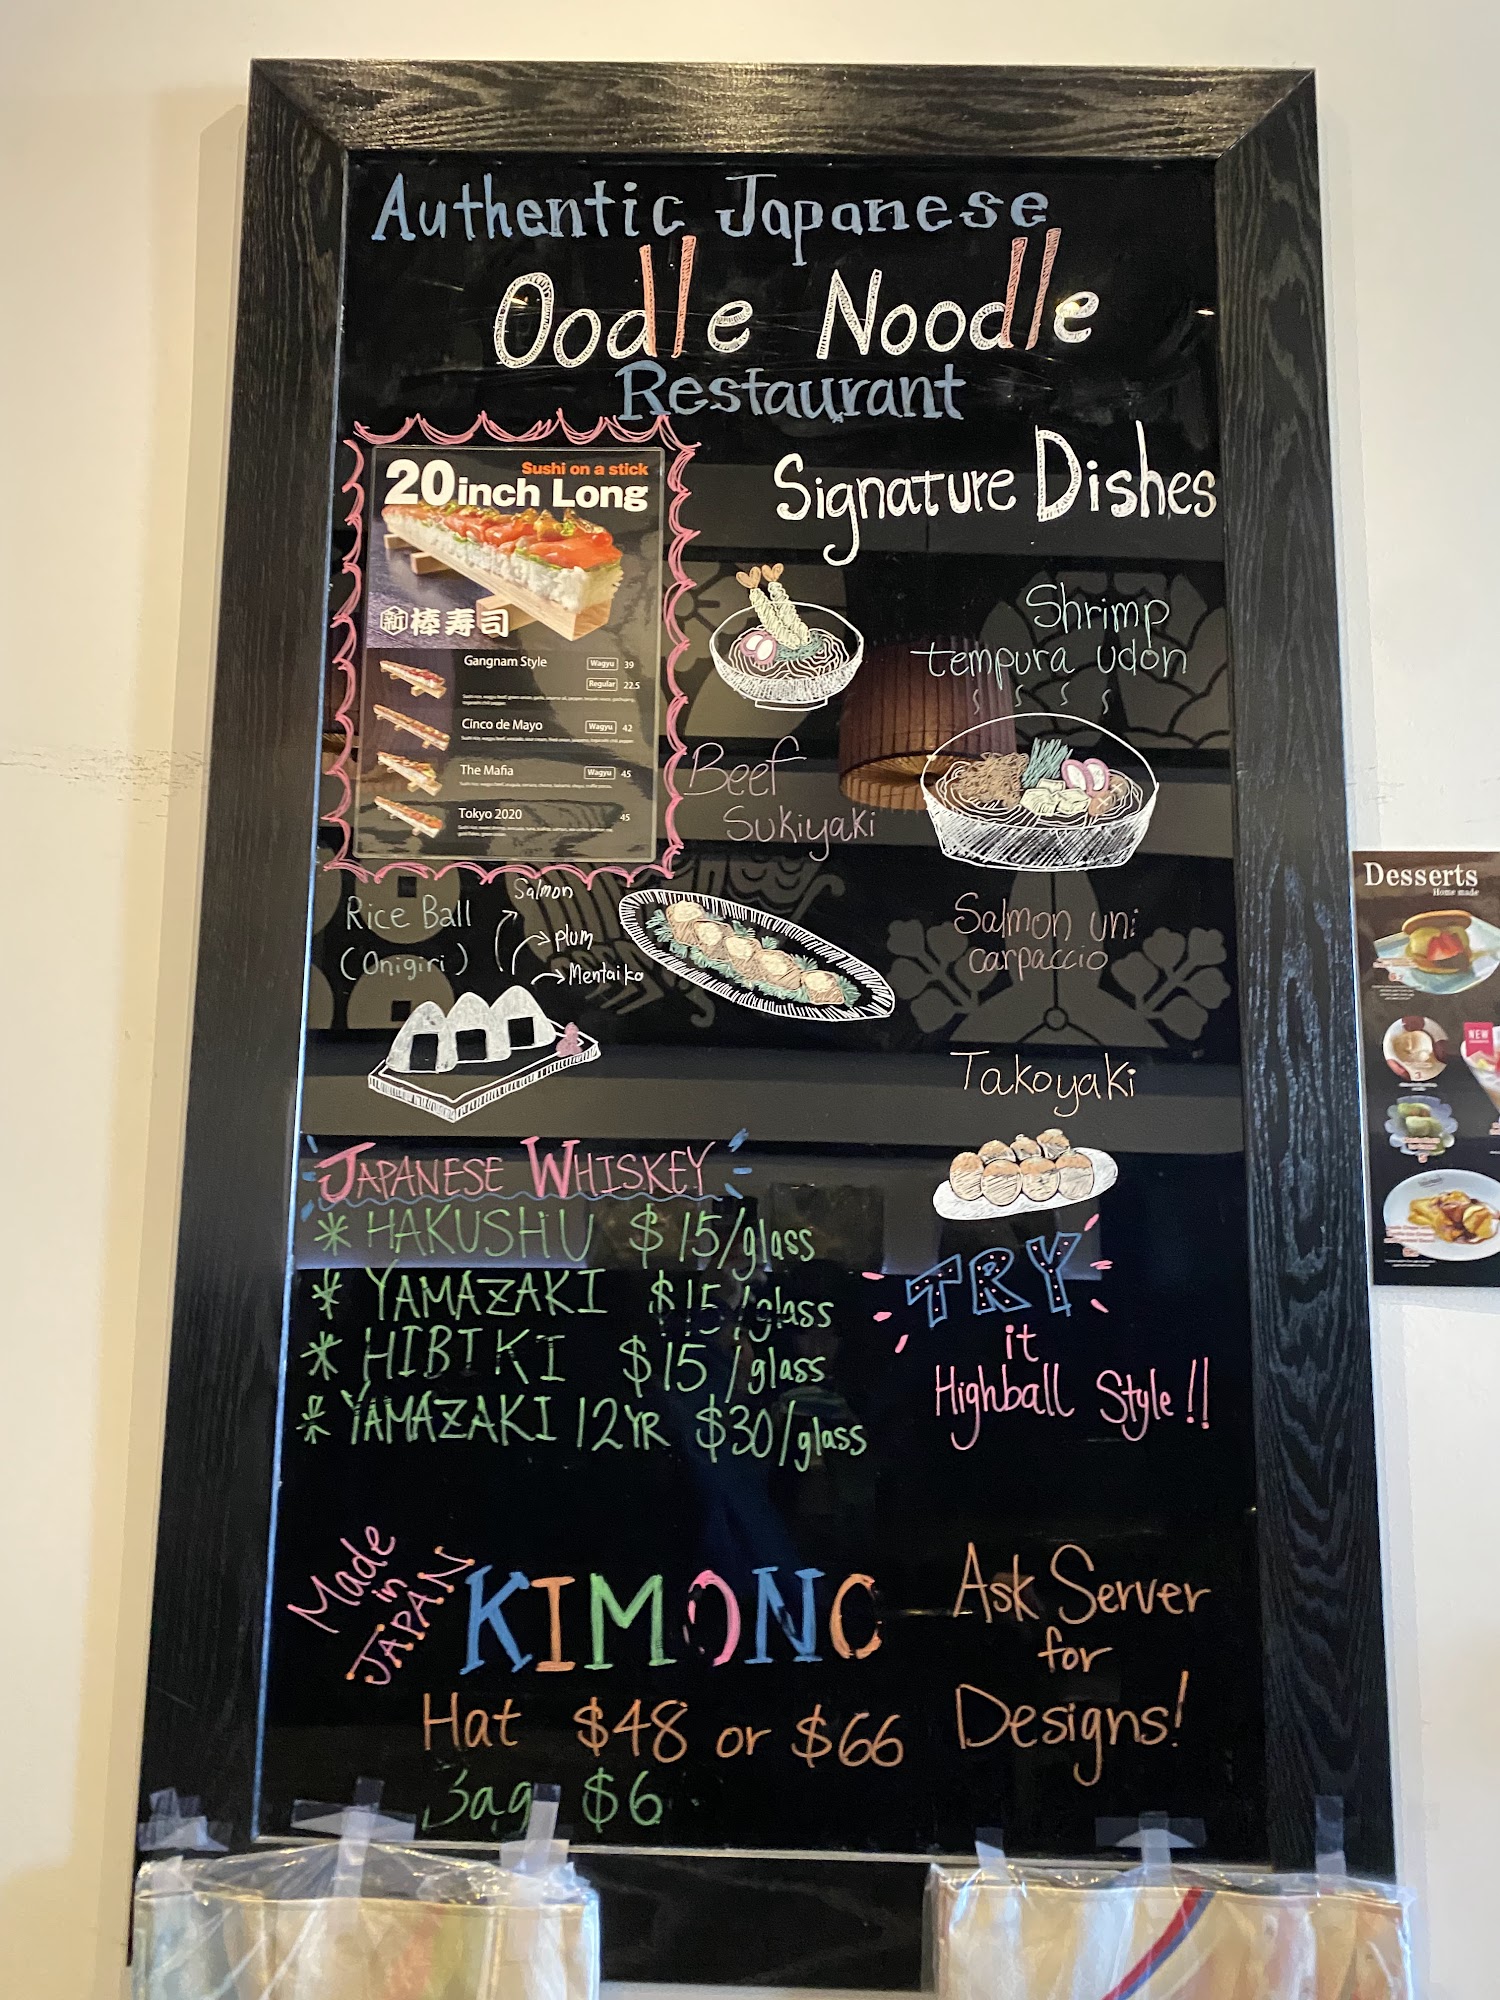 Authentic Japanese
Oodle Noodle
Restaurant
Sushi on a stick
20inch Long
新 棒寿司
Gangnam Style Wagyu 39
Regular 22.5
Cinco de Mayo Wagyu 42
The Mafia Wagyu 45
Tokyo 2020 45
Signature Dishes
Shrimp
tempura udon
Beef
Sukiyaki
Rice Ball
(Onigiri)
Salmon
plum
Mentaiko
Salmon uni
carpaccio
Takoyaki
JAPANESE WHISKEY
* HAKUSHU $15/glass
* YAMAZAKI $15/glass
* HIBIKI $15/glass
* YAMAZAKI 12YR $30/glass
TRY
it
Highball Style!!
Made
in
JAPAN
KIMONO
Hat $48 or $66
Bag $6
Ask Server
for
Designs!
Desserts
Home made
NEW